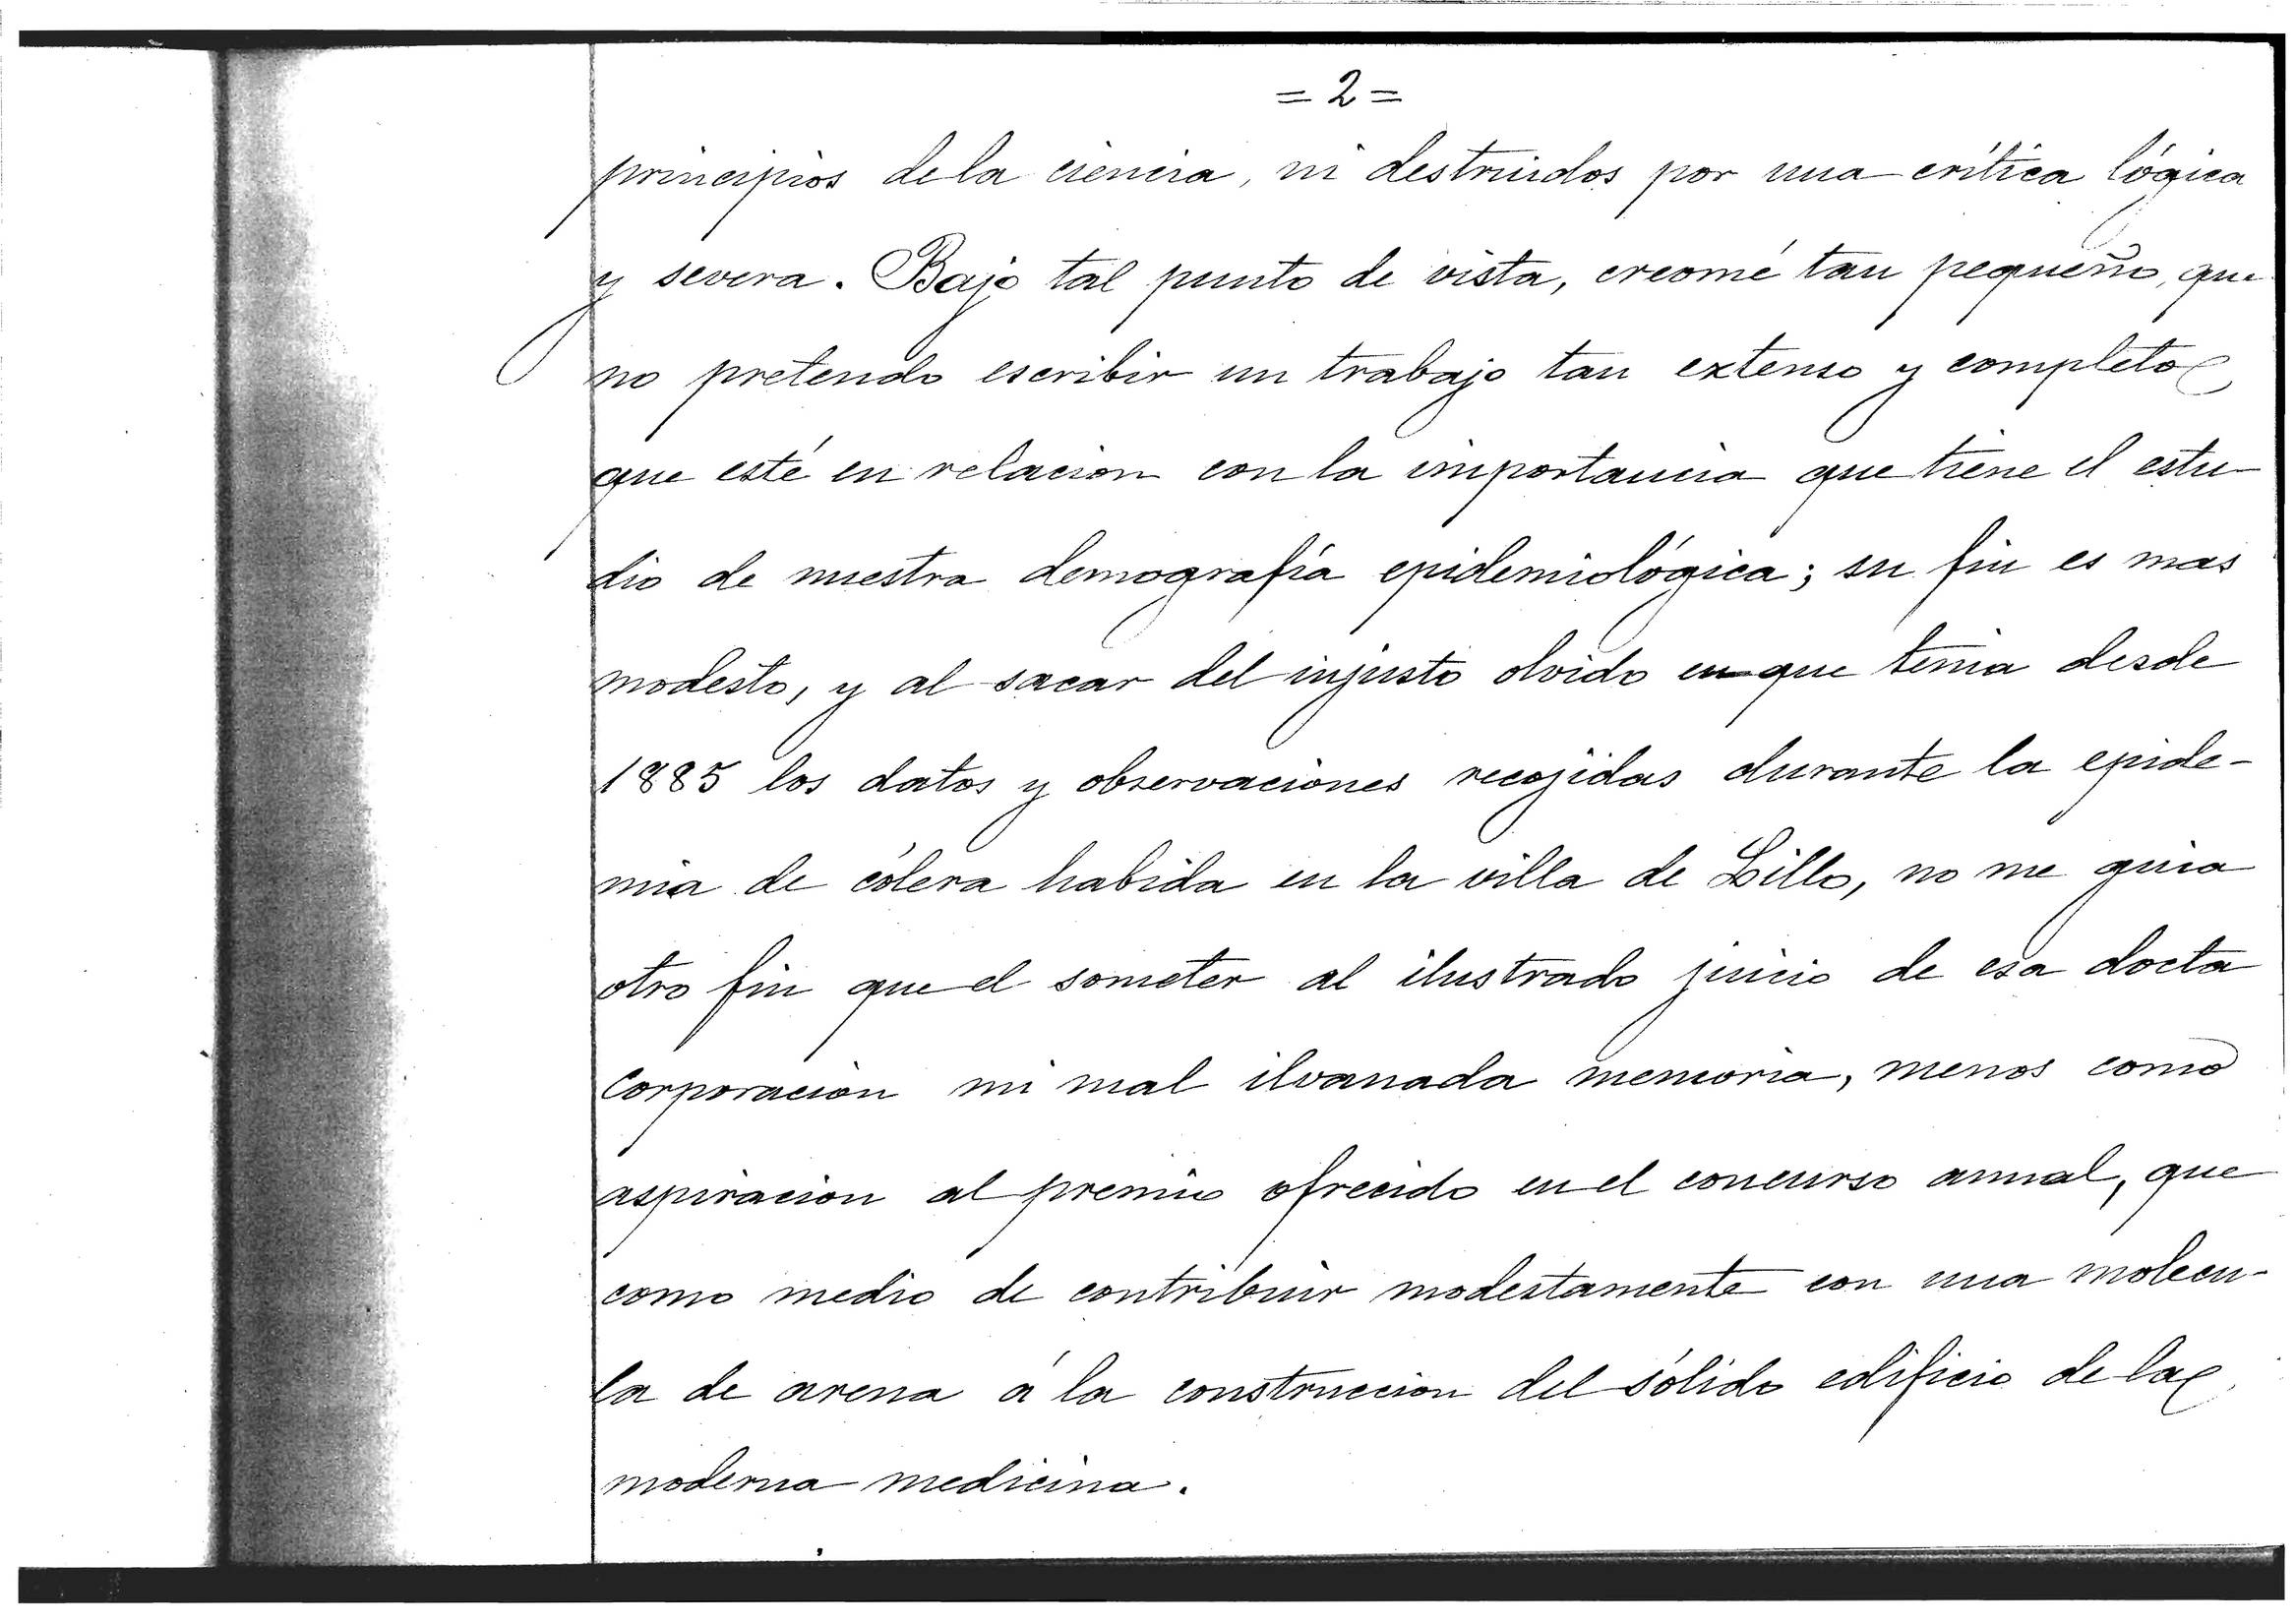 = 2 =
principios de la ciencia, ni destruidos por una crítica lógica
y severa. Bajo tal punto de vista, creomé tan pequeño, que
no pretendo escribir un trabajo tan extenso y completo
que esté en relacion con la importancia que tiene el estu-
dio de nuestra demografía epidemiológica; su fin es mas
modesto, y al sacar del injusto olvido en que tenia desde
1885 los datos y observaciones recojidas durante la epide-
mia de cólera habida en la villa de Lillo, no me guia
otro fin que el someter al ilustrado juicio de esa docta
Corporacion mi mal ilvanada memoria, menos como
aspiracion al premio ofrecido en el concurso anual, que
como medio de contribuir modestamente con una molecu-
la de arena á la construccion del sólido edificio de la
moderna medicina.